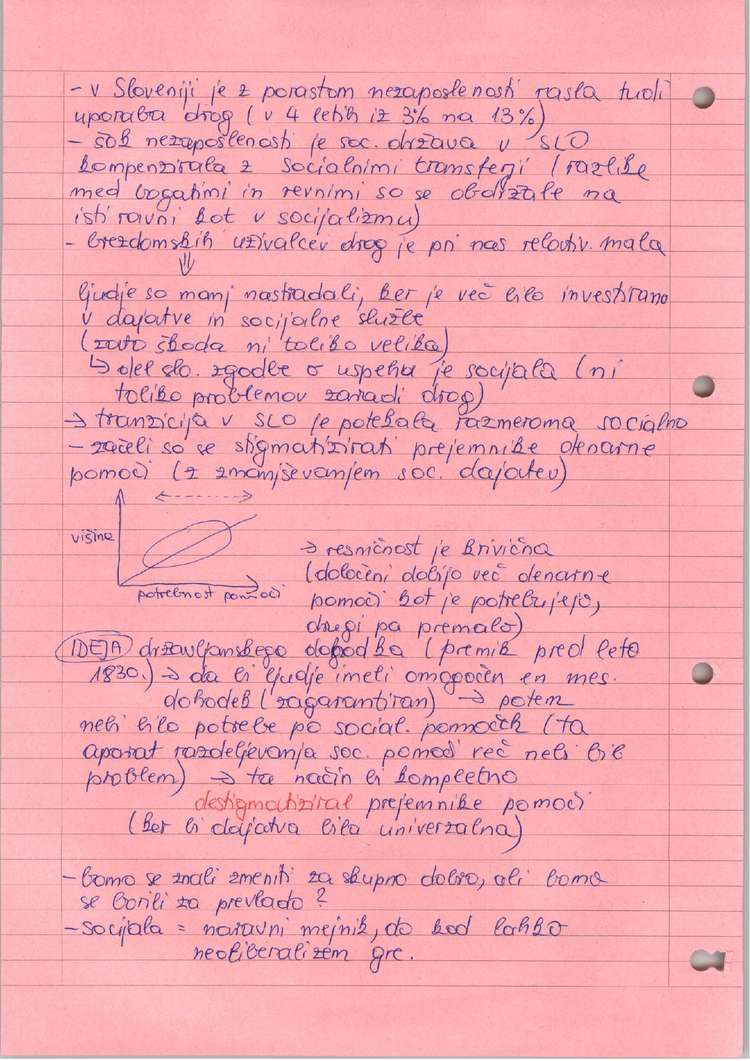 - v Sloveniji je z porastom nezaposlenosti rasla tudi
uporaba drog (v 4 letih iz 3% na 13%)
- šok nezaposlenosti je soc. država v SLO
kompenzirala z socialnimi transferji (razlike
med bogatimi in revnimi so se obdržale na
isti ravni kot v socijalizmu)
- brezdomskih uživalcev drog je pri nas relativ. mala
⇓
ljudje so manj nastradali, ker je več bilo investirano
v dajatve in socijalne službe
(zato škoda ni toliko velika)
↳ del slo. zgodbe o uspehu je socijala (ni
toliko problemov zaradi drog)
→ tranzicija v SLO je potekala razmeroma socialno
- začeli so se stigmatizirati prejemnike denarne
pomoči (z zmanjševanjem soc. dajatev)
višina
potrebnost pomoči
→ resničnost je krivična
(določeni dobijo več denarne
pomoči kot je potrebujejo,
drugi pa premalo)
IDEJA državljanskega dohodka (premik pred leto
1830.) → da bi ljudje imeli omogočen en mes.
dohodek (zagarantiran) → potem
nebi bilo potrebe po social. pomočeh (ta
aparat razdeljevanja soc. pomoči več nebi bil
problem) → ta način bi kompletno
destigmatiziral prejemnike pomoči
(ker bi dajatva bila univerzalna)
- bomo se znali zmeniti za skupno dobro, ali bomo
se borili za prevlado?
- socijala = naravni mejnik, do kod lahko
neoliberalizem gre.